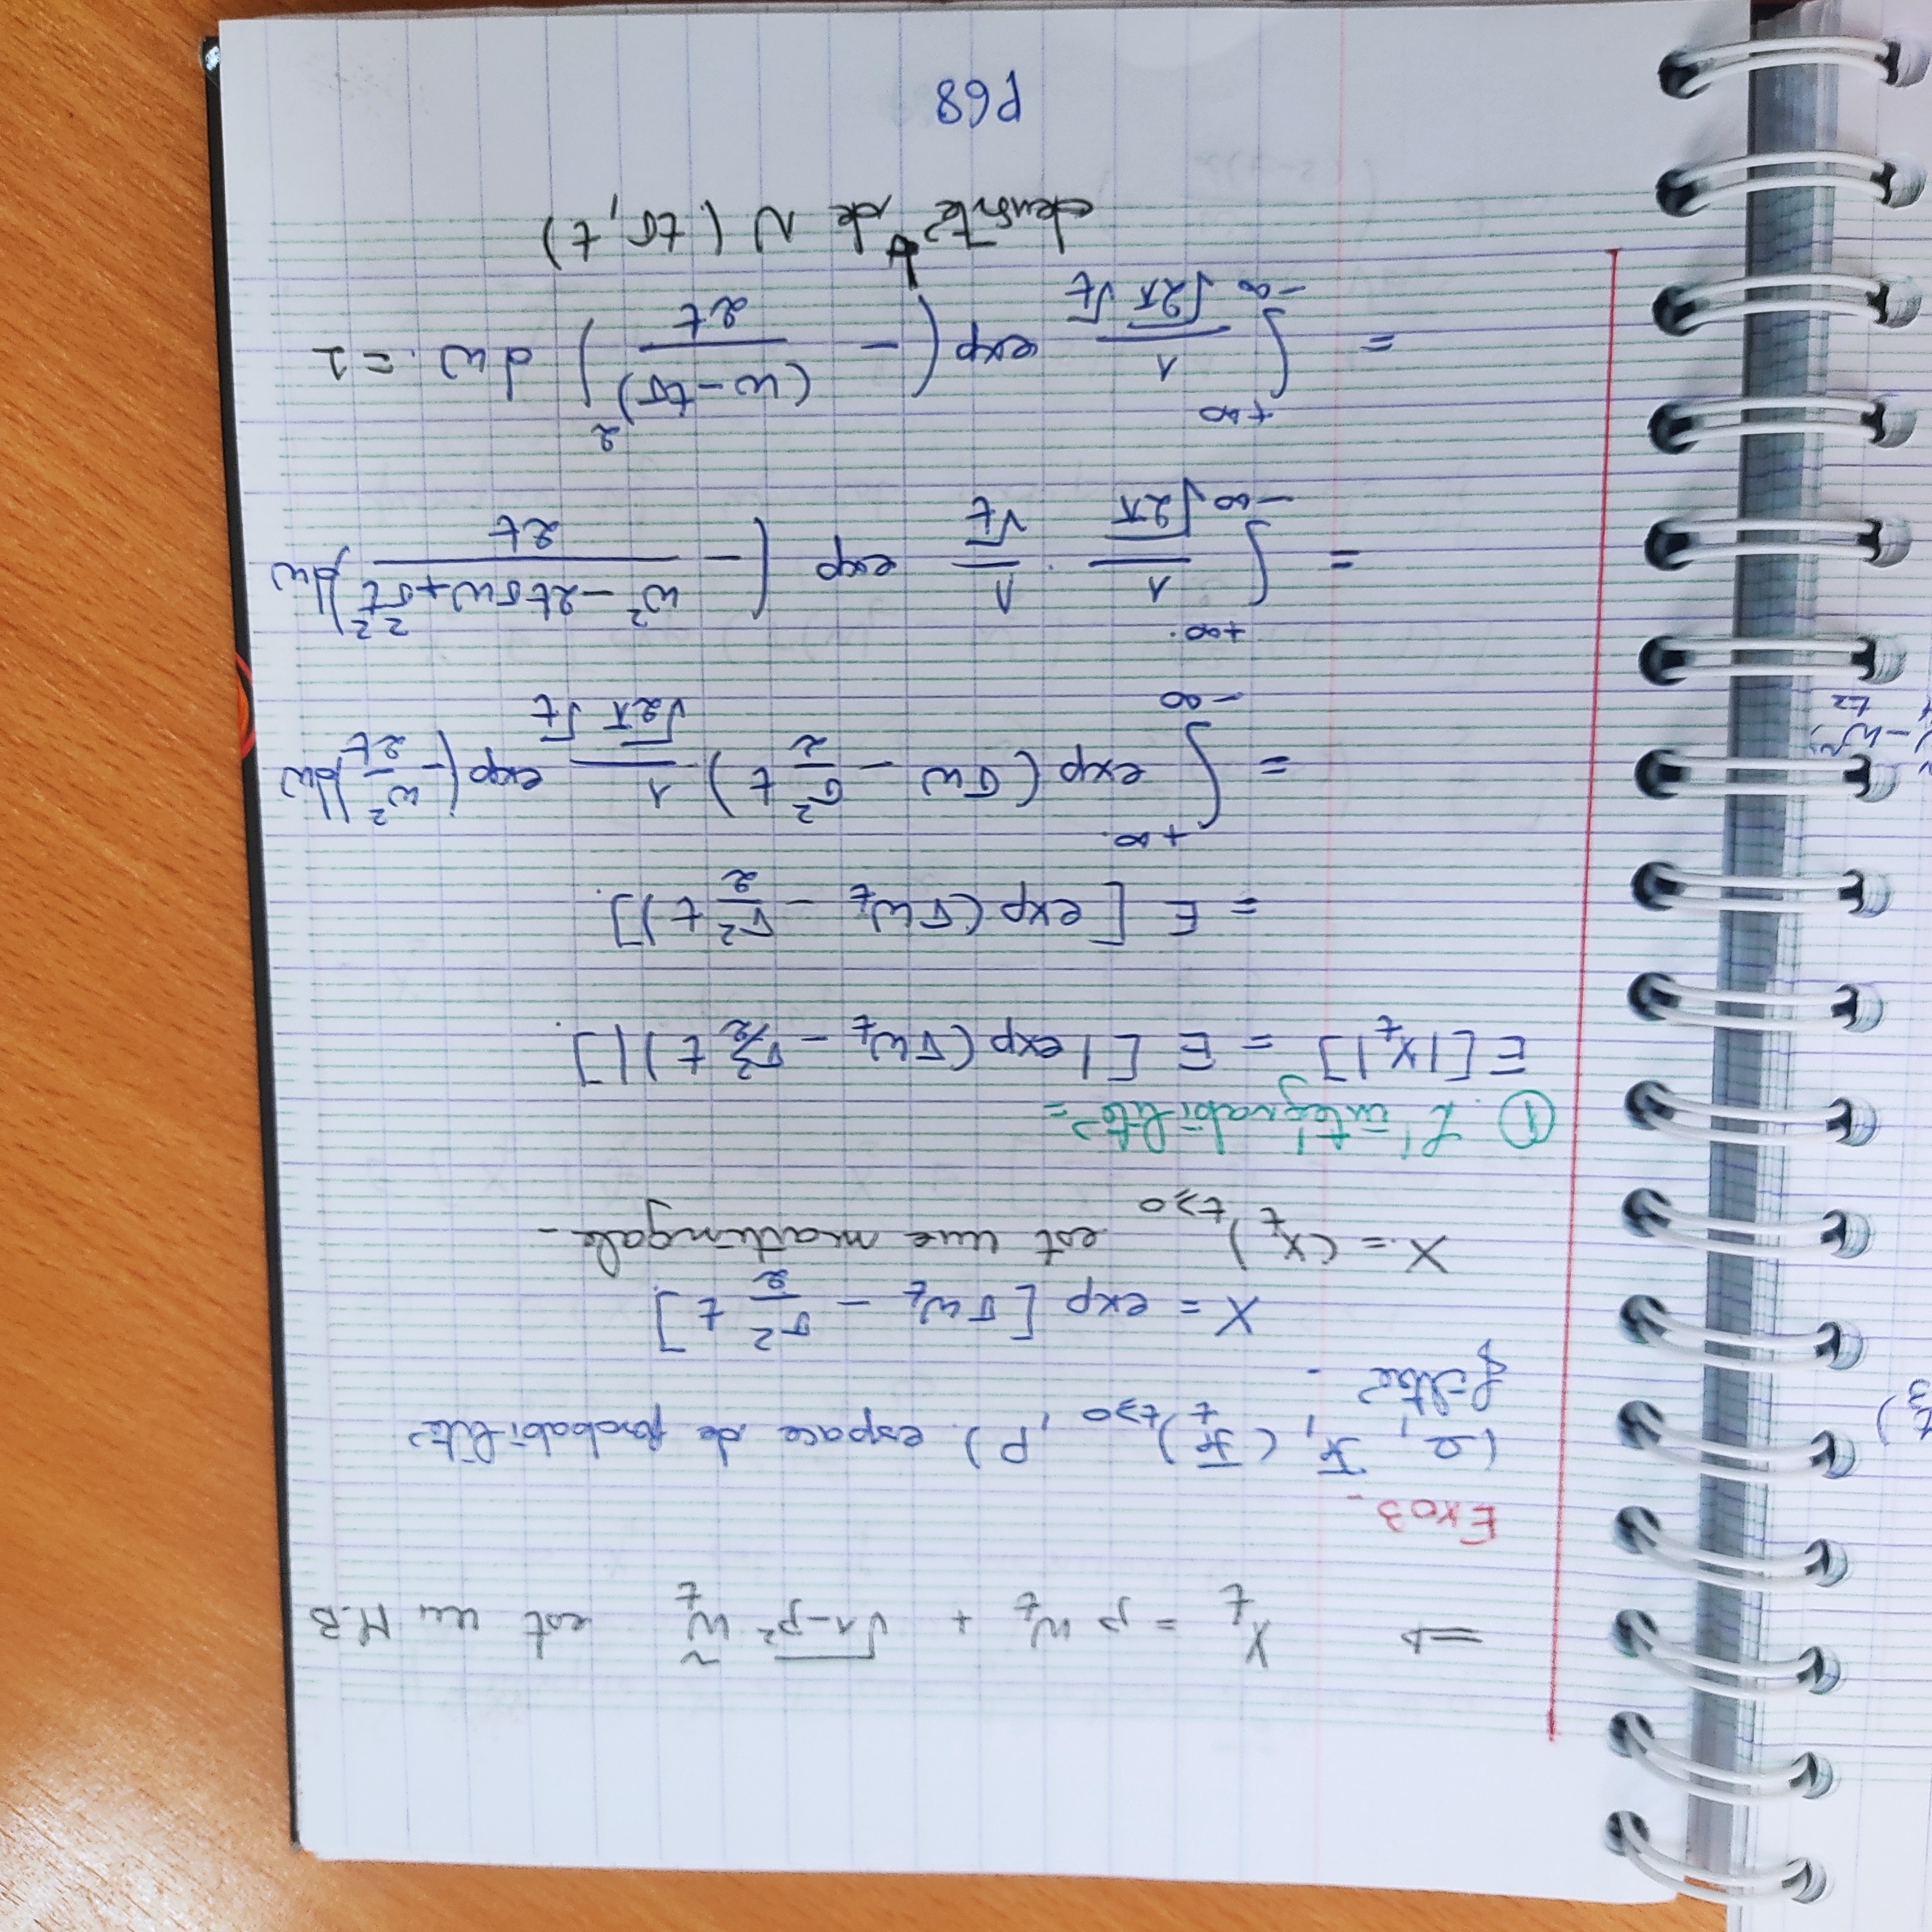 ⇒ X_t = ρ W_t + √(1-ρ²) W̃_t est un M.B
Exo3_
(Ω, F, (F_t)_{t≥0}, P). espace de probabilité
filtré.
X = exp [σw_t - σ²/2 t]
X = (X_t)_{t≥0} est une martingale_
① L'intégrabilité =
E[|X_t|] = E [| exp(σw_t - σ²/2 t)|].
= E [exp(σw_t - σ²/2 t)].
= ∫_{-∞}^{+∞} exp(σw - σ²/2 t) 1/(√2π √t) exp(-w²/2t)dw
= ∫_{-∞}^{+∞} 1/√2π · 1/√t exp (- (w² - 2tσw + σ²t²)/2t)dw
= ∫_{-∞}^{+∞} 1/(√2π √t) exp(- (w - tσ)²/2t) dw. = 1
densité de N(tσ, t)
P68
t_3)
- W̃_{t_2}